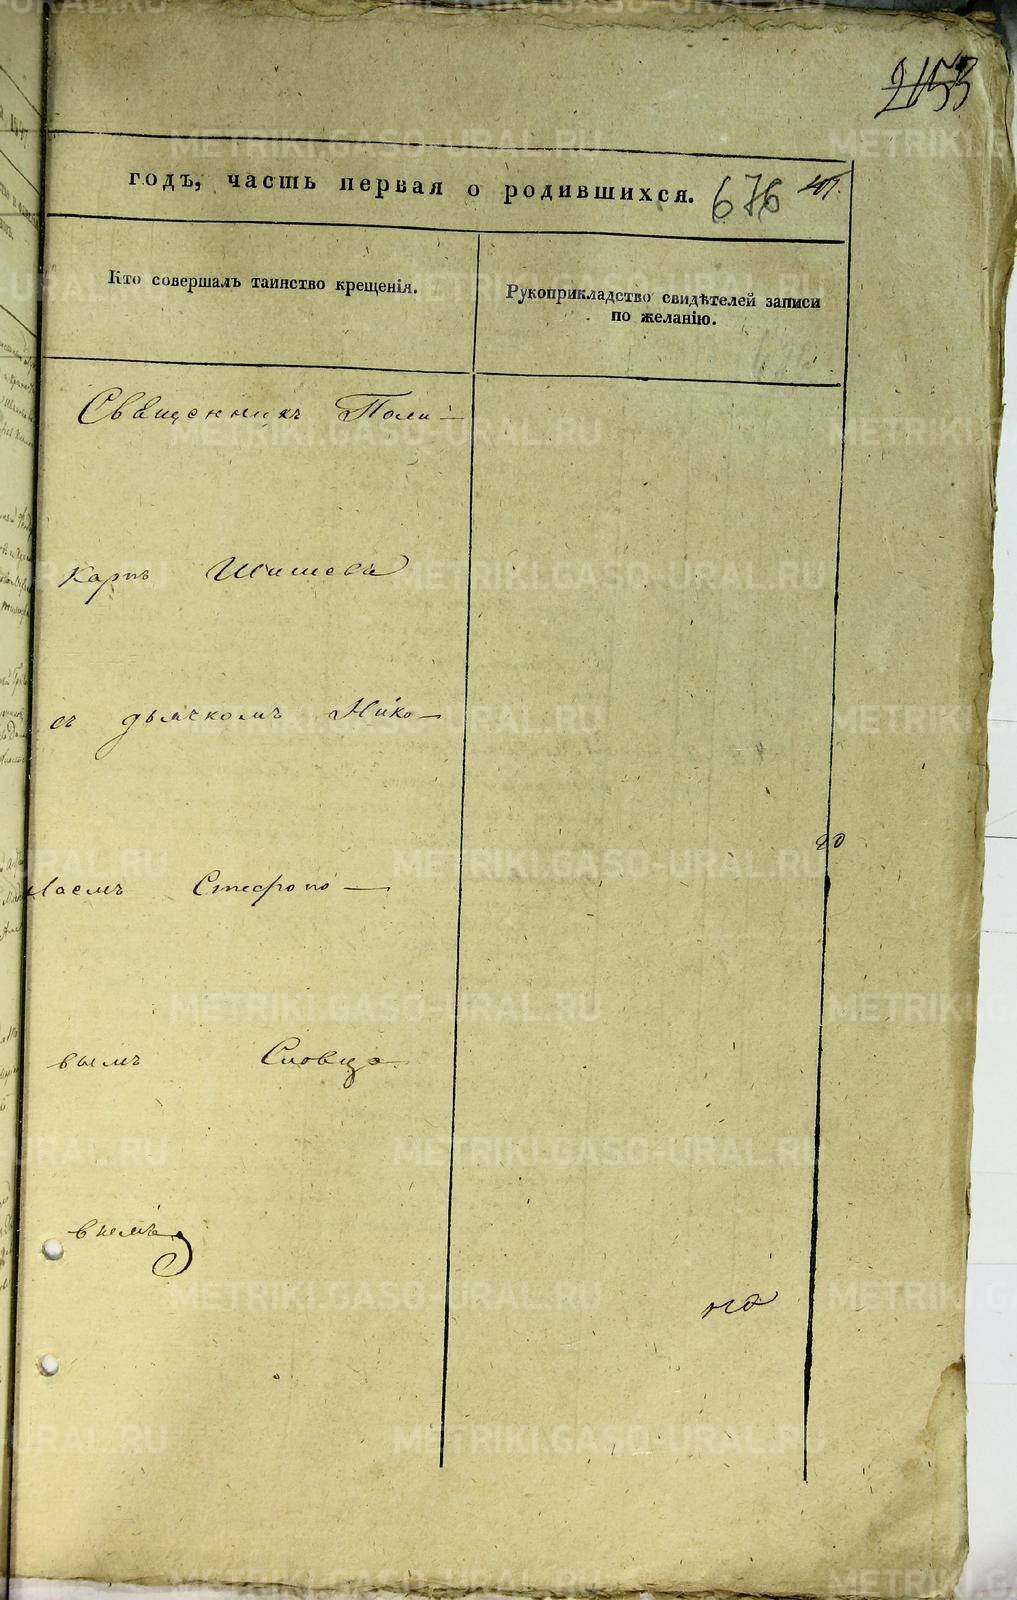 2153
годъ, часть первая о родившихся. 676
Кто совершалъ таинство крещенія.
Рукоприкладство свидѣтелей записи
по желанію.
Священникъ Поли-
карпъ Шишевъ
съ дьячкомъ Нико-
лаемъ
вымъ
вымъ
METRIKI.GASO-URAL.RU